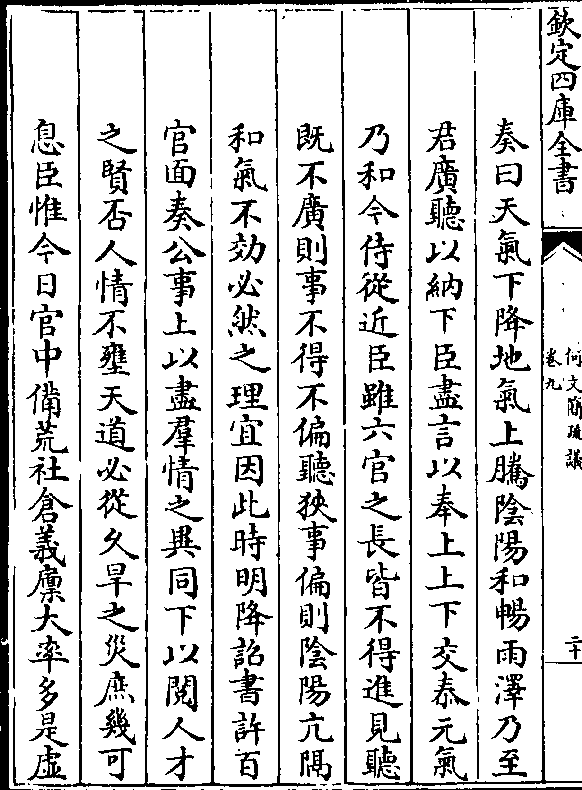 欽定四庫全書
何文簡疏議
卷九
二十
奏曰天氣下降地氣上騰陰陽和暢雨澤乃至
君廣聽以納下臣盡言以奉上上下交泰元氣
乃和今侍從近臣雖六官之長皆不得進見聽
既不廣則事不得不偏聽狹事偏則陰陽亢隔
和氣不効必然之理宜因此時明降詔書許百
官面奏公事上以盡羣情之異同下以閱人才
之賢否人情不壅天道必從久旱之災庶幾可
息臣惟今日官中備荒社倉義廩大率多是虛